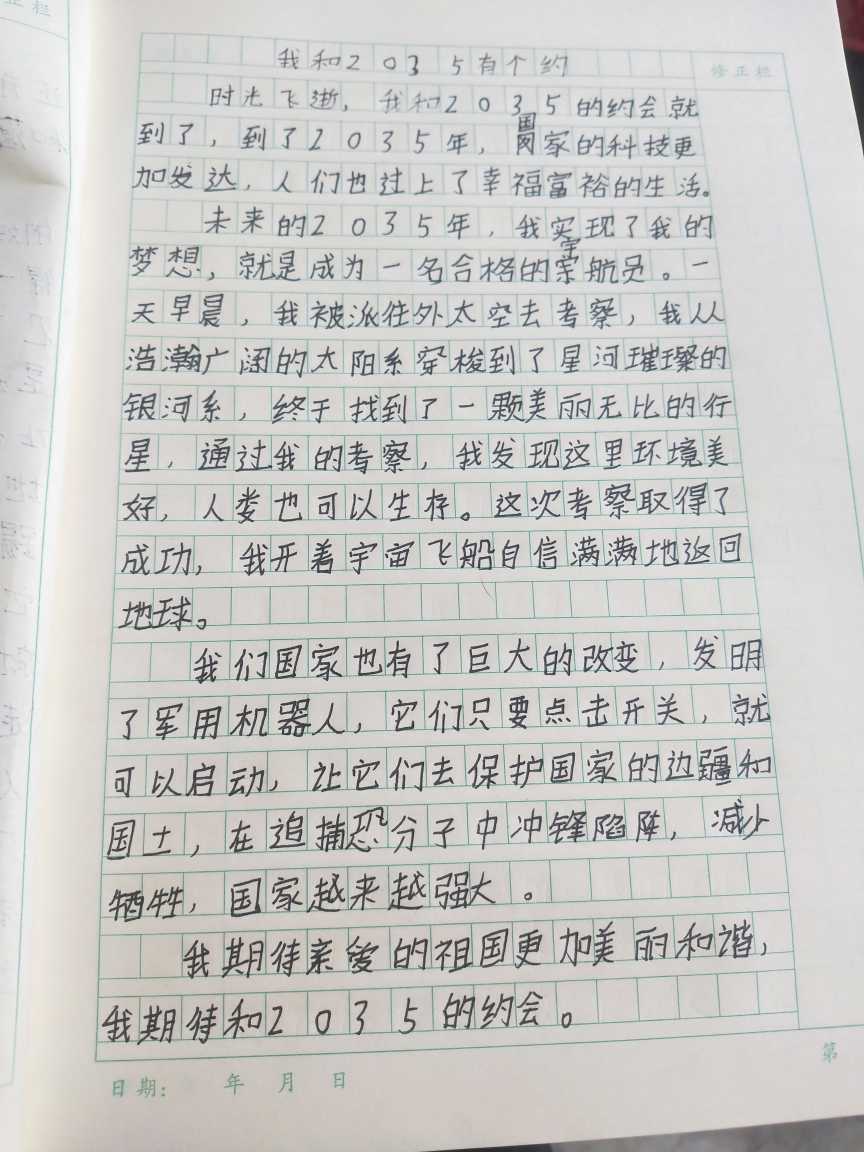 修正栏
我和2035有个约
时光飞逝，我和2035的约会就
到了，到了2035年，国家的科技更
加发达，人们也过上了幸福富裕的生活。
未来的2035年，我实现了我的
梦想，就是成为一名合格的宇航员。一
天早晨，我被派往外太空去考察，我从
浩瀚广阔的太阳系穿梭到了星河璀璨的
银河系，终于找到了一颗美丽无比的行
星，通过我的考察，我发现这里环境美
好，人类也可以生存。这次考察取得了
成功，我开着宇宙飞船自信满满地返回
地球。
我们国家也有了巨大的改变，发明
了军用机器人，它们只要点击开关，就
可以启动，让它们去保护国家的边疆和
国土，在追捕恐分子中冲锋陷阵，减少
牺牲，国家越来越强大。
我期待亲爱的祖国更加美丽和谐，
我期待和2035的约会。
第
日期： 年 月 日